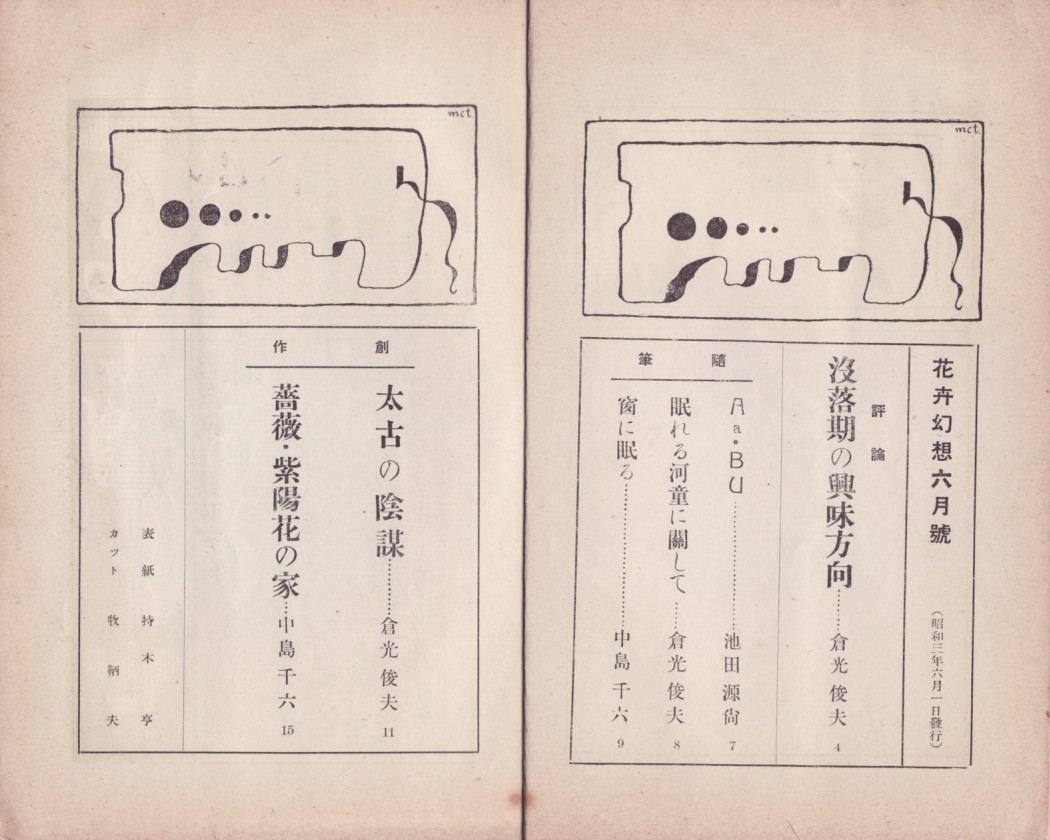 mct
花卉幻想六月號
(昭和三年六月一日發行)
評論
沒落期の興味方向……倉光俊夫 4
隨筆
Aa・BU……池田源尙 7
眠れる河童に關して……倉光俊夫 8
窗に眠る……中島千六 9
mct
創作
太古の陰謀……倉光俊夫 11
薔薇・紫陽花の家……中島千六 15
表紙 持木亨
カット 牧鞆夫